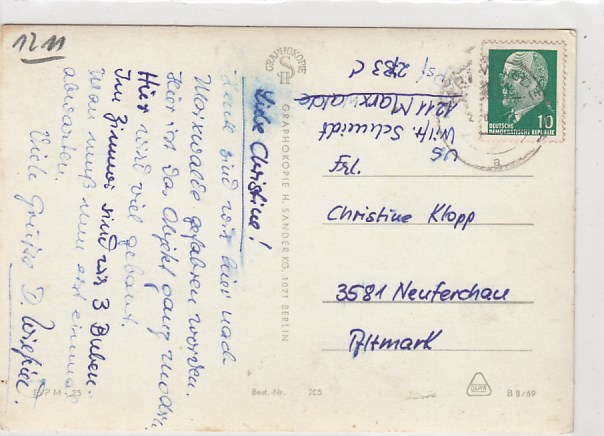 12 11
Liebe Christine!
Heute sind wir hier nach
Marxwalde gefahren worden.
Hier ist das Objekt ganz modern.
Hier wird viel gebaut.
Im Zimmer sind wir 3 Buben.
Man muß nun erst einmal
abwarten.
Viele Grüße D.
GRAPHOKOPIE
SH
GRAPHOKOPIE H. SANDER KG, 1071 BERLIN
US
Wilfr. Schmidt
1211 Marxwalde
Psf 283 C
Frl.
Christine Klopp
3581 Neuferchau
Altmark
DEUTSCHE
DEMOKRATISCHE REPUBLIK
10
a
M - 25
Best.-Nr. 205
B 8/69